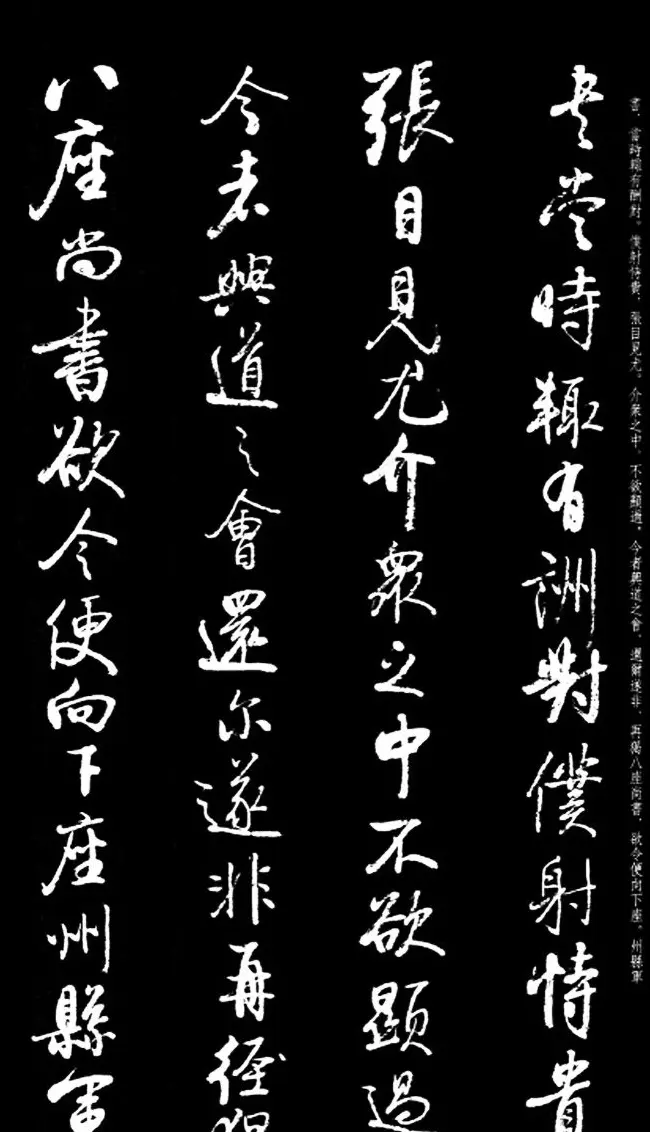 書，當時輒有酬對。僕射恃貴，張目見尤。介衆之中，不欲顯過。今者興道之會，還爾遂非，再猲八座尚書，欲令便向下座。州縣軍
書當時輒有酬對僕射恃貴
張目見尤介衆之中不欲顯過
今者興道之會還尔遂非再徑
八座尚書欲令便向下座州縣軍